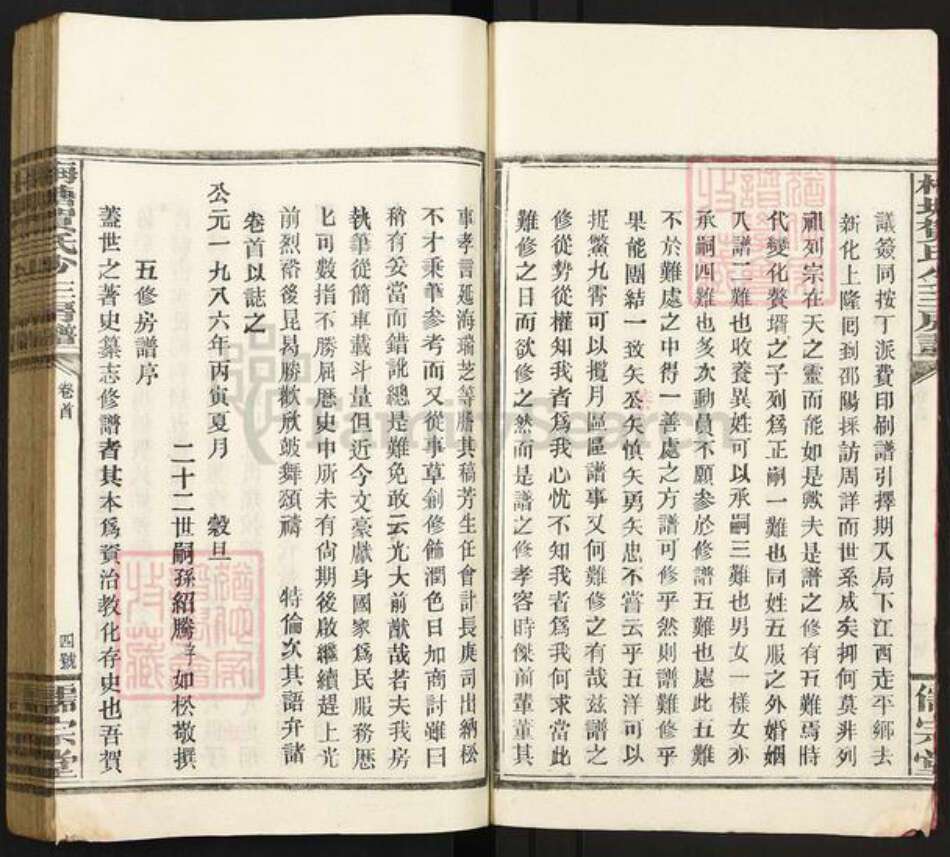 議簽同按丁派費印刷譜引擇期入局下江西走平鄉去
新化上隆囘到邵陽採訪周詳而世系成矣抑何莫非列
祖列宗在天之靈而能如是歟夫是譜之修有五難焉時
代變化贅壻之子列爲正嗣一難也同姓五服之外婚姻
入譜二難也收養異姓可以承嗣三難也男女一樣女亦
承嗣四難也多次動員不願參於修譜五難也處此五難
不於難處之中得一善處之方譜可修乎然則譜難修乎
果能團結一致矢公矢慎矢勇矢忠不嘗云乎五洋可以
捉鱉九霄可以攬月區區譜事又何難修之有哉茲譜之
修從勢從權知我者爲我心忧不知我者爲我何求當此
難修之日而欲修之然而是譜之修孝容時傑前輩董其
車孝言延海瑞芝等勝其稿芳生任會計長庚司出納松
不才乘筆參考而又從事草創修飾潤色日加商討雖曰
稍有妥當而錯訛總是難免敢云光大前猷哉若夫我房
執筆從簡車載斗量但近今文豪獻身國家爲民服務歷
七可數指不勝屈歷史中所未有尙期後啟繼續趕上光
前烈裕後昆曷勝歡欣鼓舞頌禱 特倫次其語弁諸
卷首以誌之
公元一九八六年丙寅夏月 穀旦
二十二世嗣孫紹騰 如松敬撰
五修房譜序
蓋世之著史纂志修譜者其本爲資治教化存史也吾賀
卷首
四號
儒宗堂
儒宗堂
FamilySearch